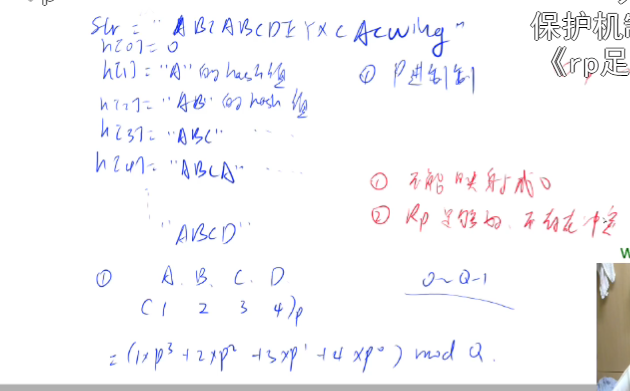 Str = "ABCABCDEYXCAcwing"
h[0] = 0
h[1] = "A"的hash值
h[2] = "AB"的hash值
h[3] = "ABC" ......
h[4] = "ABCA" ......
"ABCD"
① P进制
保护机制
《rp足
① 不能映射成0
② Rp足够好,不存在冲突
① A. B. C. D
( 1 2 3 4)p
0~Q-1
= (1×p³+2×p²+3×p¹+4×p⁰) mod Q.